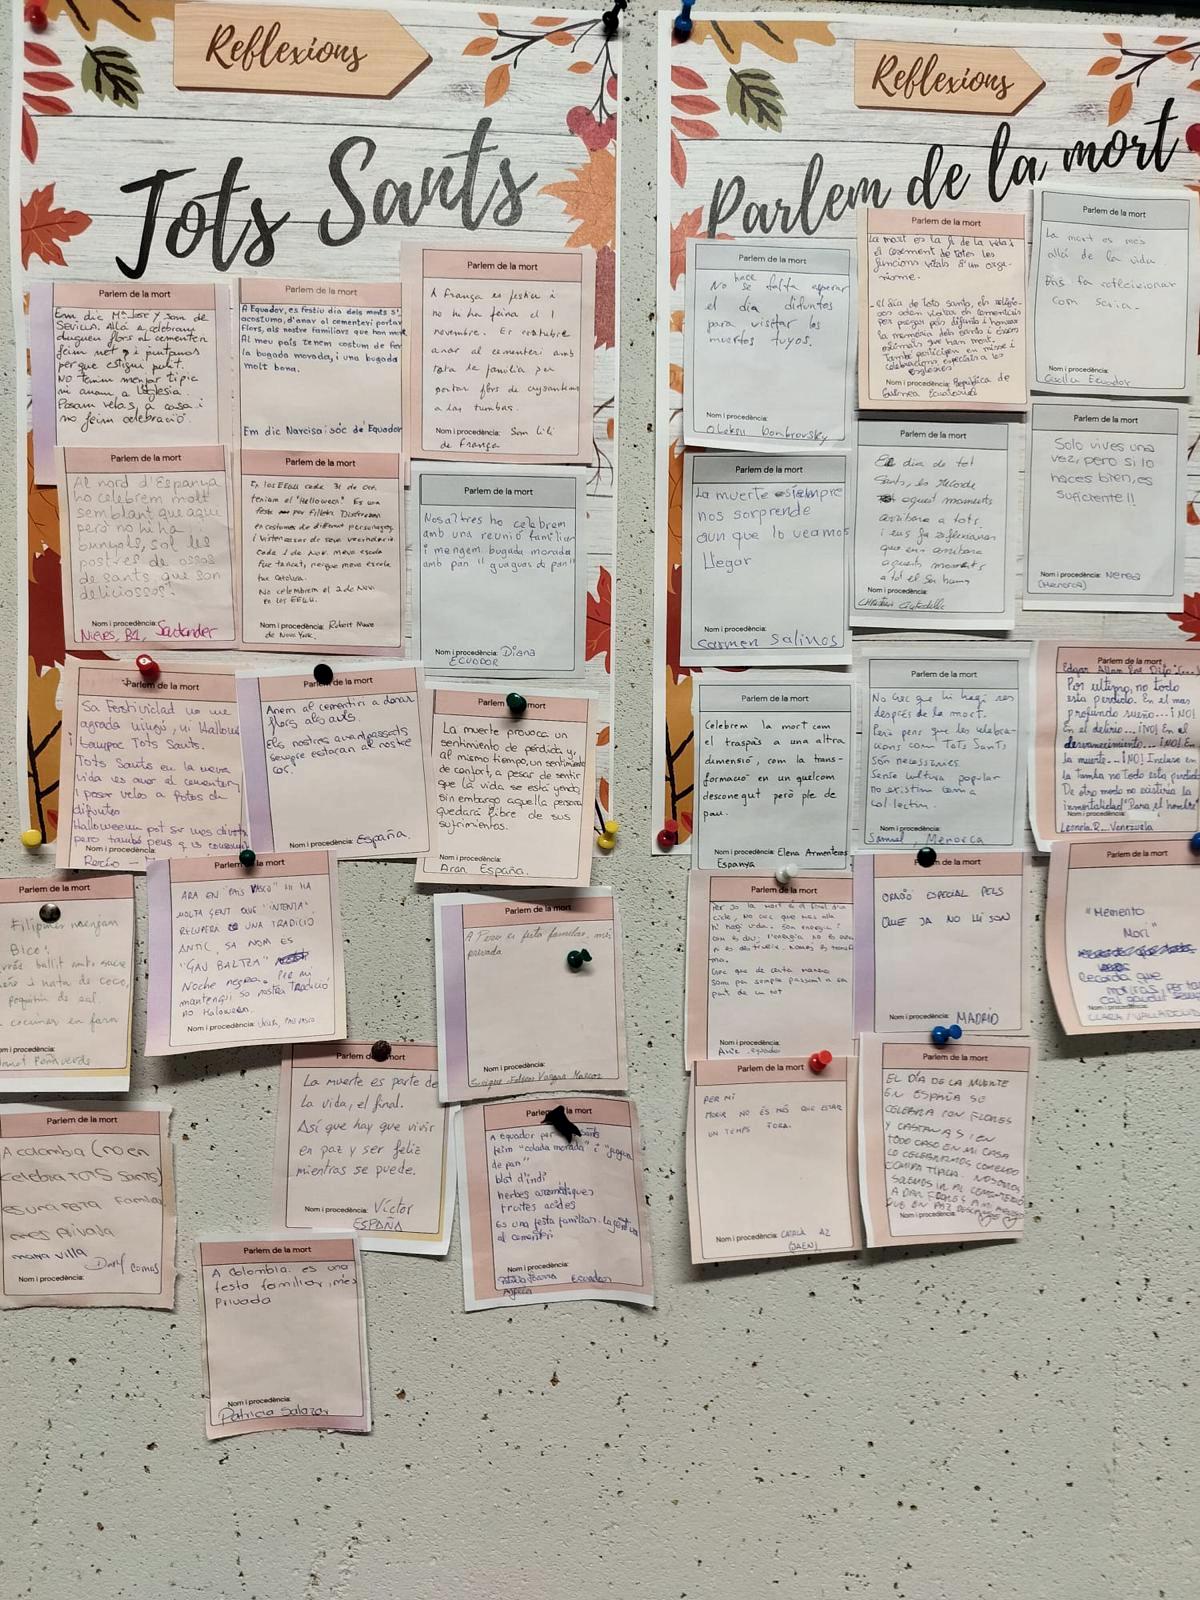 Reflexions
Tots Sants
Parlem de la mort
Em dic Mª Jose y som de
SEVILLA. Allá a celebram
duguem flors al cementeri
feim net i puntanos
perque estigui punt.
NO tenim menjar tipic
ni anam a l'Iglesia.
Posam velas, a casa i
no feim celebració.
Parlem de la mort
A Equador, es festiu dia dels morts s'
acostuma, d'anar al cementeri portar
Flors, als nostre familiars que han mort
Al meu país tenem costum de fer
la bugada morada, i una bugada
molt bona.
Em dic Narcisa i sóc de Equador
Parlem de la mort
A França es festiu i
no hi ha feina el 1
novembre. Es costubre
anar al cementeri amb
tota se familia per
portar flors de crysantem
a las tumbas.
Nom i procedència: Som Lili
de França
Parlem de la mort
Al nord d'Espanya
ho celebrem molt
semblant que aqui
però no hi ha
bunyols, sol les
postres de ossos
de sants, que son
deliciossos!
Nom i procedència:
Nieves, B1, Santander
Parlem de la mort
En los EEUU cada 31 de Oct.
teniam el "Helloween". Es una
festa per
en costumes de different personages
cada 1 de Nov. meva escola
fue tencat, perque meva escola
fue Catolica.
No celembrem el 2 de Nov
en los EEUU.
Nom i procedència: Robert
de Nova York.
Parlem de la mort
Nosaltres ho celebrem
amb una reunió familiar
i mengem bugada morada
amb pan "guaguas de pan"
Nom i procedència: Diana
ECUADOR
Parlem de la mort
Sa Festividad no me
agrada ningú, ni Hallowe
tampoc Tots Sants.
Tots Sants en la meva
vida es anar al cementeri
i posar velas a fotos de
difuntos
Halloween pot ser mes divertit
pero també pens q is consumi
Nom i procedència:
Rocío –
Parlem de la mort
Anem al cementiri a donar
flors als avis.
Els nostres avantpassats
sempre estaran al nostre
cor.
Nom i procedència: España.
Parlem de la mort
La muerte provoca un
sentimiento de pérdida y,
al mismo tiempo, un sentimiento
de confort, a pesar de sentir
que la vida se está yendo,
sin embargo aquella persona
quedará libre de sus
sufrimientos.
Nom i procedència:
Aran. España.
Parlem de la mort
Filipines menjam
Bico:
arròs bullit amb sucre
i nata de coco,
poquitin de sal.
cocinar en forn
Nom i procedència:
Parlem de la mort
ARA EN "PAÍS VASCO" HI HA
MOLTA GENT QUE "INTENTA"
RECUPERÀ UNA TRADICIÓ
ANTIC, SA NOM ES
"GAU BALTZA"
Noche negra. Per mi
mantengui sa nostra TRADICIÓ
no Haloween.
Nom i procedència: PAIS VASCO
A Peru es festa familiar, més
privada
Nom i procedència:
Enrique Edson Vargas Marcos
Parlem de la mort
La muerte es parte de
la vida, el final.
Así que hay que vivir
en paz y ser feliz
mientras se puede.
Víctor
ESPAÑA
Parlem de la mort
A colombia (no en
celebra TOTS SANTS)
es una festa Familiar
mes Privada
maria villa
Nom i procedència: Dary Comas
Parlem de la mort
A equador per
feim "colada morada" i "guagua
de pan"
blat d'indi
herbes aromátiques
fruites acides
Es una festa familiar. La gent va
al cementiri
Nom i procedència:
Ecuador
Parlem de la mort
A Colombia: es una
festa familiar, més
privada
Nom i procedència:
Patricia Salazar
Reflexions
Parlem de la mort
Parlem de la mort
No hace
se falta esperar
el día difuntos
para visitar los
muertos tuyos.
Nom i procedència:
Oleksii Dombrovsky
Parlem de la mort
La mort es la fi de la vida i
el cesement de totes les
funcions vitals d'un orga-
nisme.
- El día de tots sants, els religio-
sos solen visitar els cementiris
per pregar pels difunts i honrar
la memoria dels sants i éssers
estimats que han mort.
També participen en misses i
celebracions especials a les
esglesies
Nom i procedència: República de
Guinea Ecuatorial
Parlem de la mort
La mort es més
allá de la vida
Ens fa reflecxionar
com seria.
Nom i procedència:
Ecuador
Parlem de la mort
La muerte siempre
nos sorprende
aun que lo veamos
llegar
Nom i procedència:
Carmen Salinos
Parlem de la mort
El dia de tot
Sants, es recorde
aquest moments
arribara a tots.
i ens fa reflexionar
que ens arribara
aquests moments
a tot el ser humà
Nom i procedència:
Christian Ciutadella
Parlem de la mort
Solo vives una
vez, pero si lo
haces bien, es
suficiente!!
Nom i procedència: Nerea
(Menorca)
Parlem de la mort
Celebrem la mort com
el traspàs a una altra
dimensió, com la trans-
formació en un quelcom
desconegut però ple de
pau.
Nom i procedència: Elena Armenteros
Espanya
Parlem de la mort
No crec que hi hagi res
després de la mort.
Però pens que les celebra-
cions com Tots Sants
són necessaries.
Sense cultura popular
no existim com a
col·lectiu.
Nom i procedència:
Samuel, Menorca
Parlem de la mort
Edgar Allan Poe Dijo (...)
Por ultimo, no todo
esta perdido. En el mas
profundo sueño... ¡NO!
En el delirio... ¡NO! En el
desvanecimiento... ¡NO! En
la muerte... ¡NO! Incluso en
la tumba no todo esta perdido
De otro modo no existiria la
inmortalidad "Para el hombre"
Nom i procedència:
Leonela R.. Venezuela
Parlem de la mort
Per jo la mort és el final d'un
cicle, no crec que més allà
hi hagi vida. Som energia i
com es diu: l'energia no es crea
ni es destrueix, només es transfor
ma.
Crec que de certa manera
som per sempre passant a ser
part de un tot
Nom i procedència:
Parlem de la mort
ORACIÓ ESPECIAL PELS
QUE JA NO HI SON
Nom i procedència: MADRID
Parlem de la mort
"Memento
Mori"
Recorda que
moriras, per tant
cal gaudir
Nom i procedència:
CLARA / VALLADOLID
Parlem de la mort
PER MI
MORIR NO ÉS MÉS QUE ESTAR
UN TEMPS FORA.
Nom i procedència: CATALÀ A2
(JAEN)
Parlem de la mort
EL DÍA DE LA MUERTE
EN ESPAÑA SE
CELEBRA CON FLORES
Y CASTAÑAS I EN
TODO CASO EN MI CASA
LO CELEBRAMOS COMIENDO
COMIDA TÍPICA. NOSOTROS
SOLEMOS IR AL CEMENTERIO
A DAR FLORES A MI
QUE EN PAZ DESCANSE
Nom i procedència: